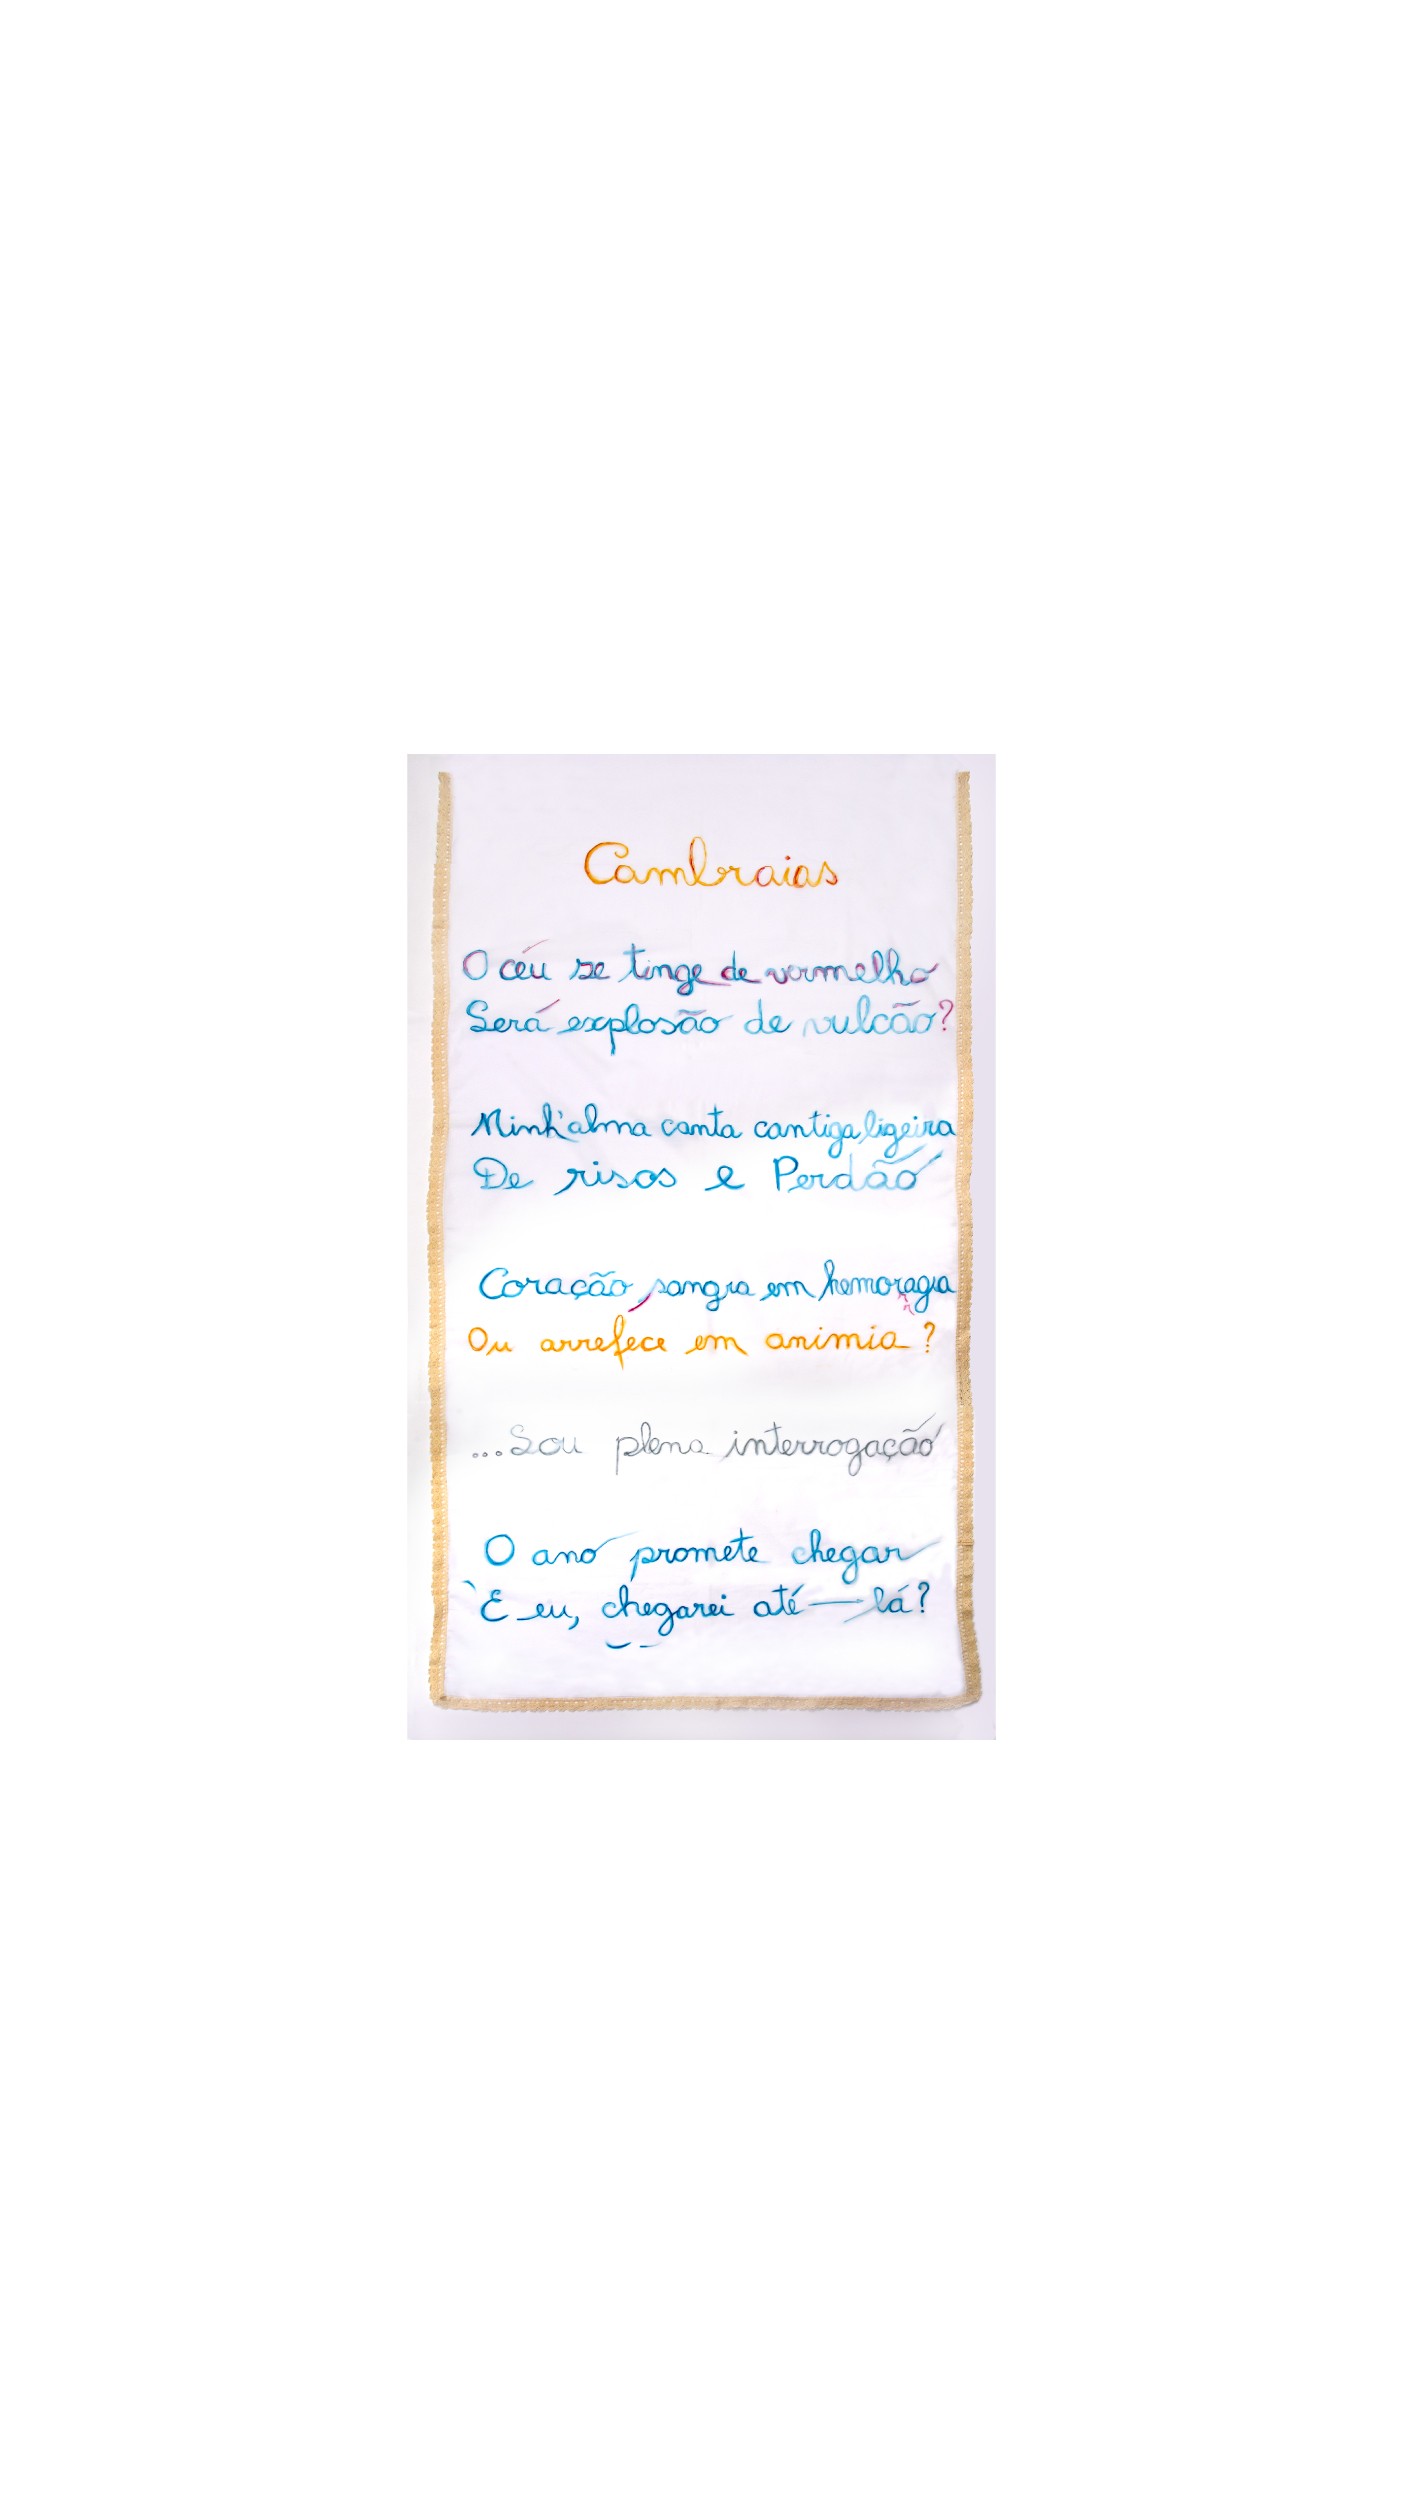 Cambraias
O céu se tinge de vermelho
Será explosão de vulcão?
Minh'alma canta cantiga ligeira
De risos e Perdão
Coração, sangra em hemoragia
r
Ou arrefece em animia?
...Sou plena interrogação
O ano promete chegar
E eu, chegarei até — lá?